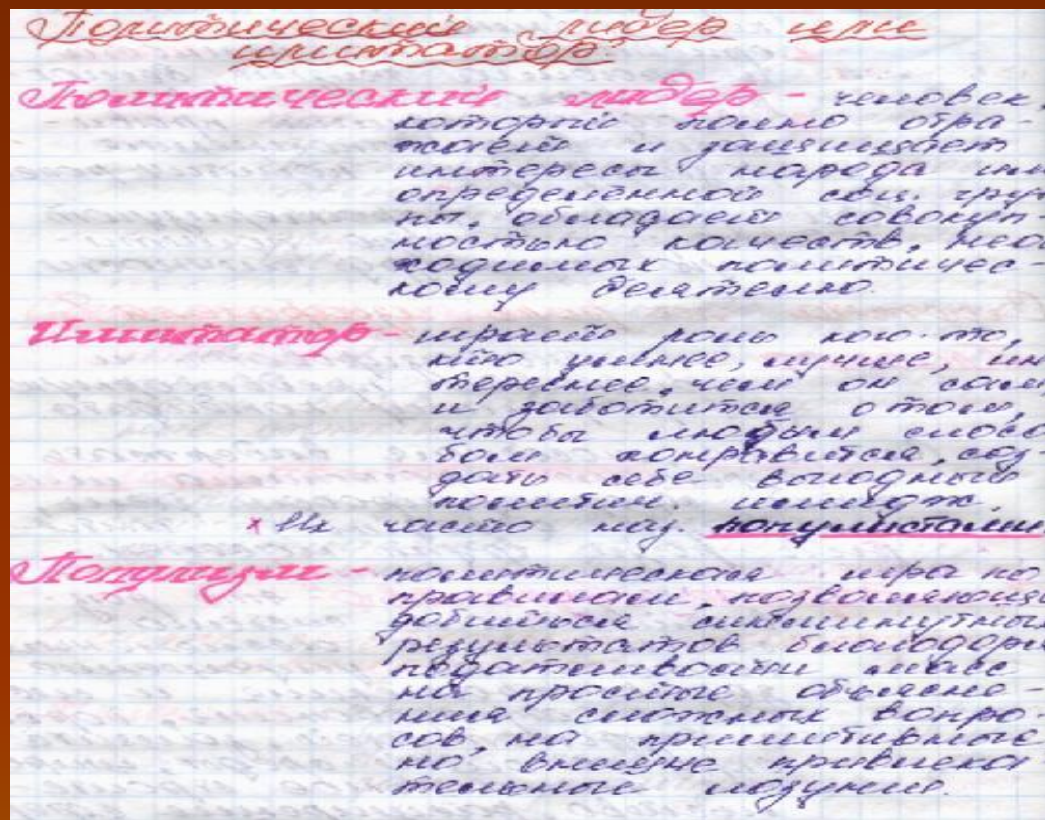 Политический лидер или
имитатор
Политический лидер - человек,
который полно отра-
жает и защищает
интересы народа или
определённой соц. груп
пы, обладает совокуп-
ностью качеств, необ
ходимых политичес-
кому деятелю.
Имитатор - играет роль кого-то,
кто умнее, лучше, ин
тереснее, чем он сам,
и заботится о том,
чтобы любым спосо
бом понравится, соз-
дать себе выгодный
политич. имидж.
х Их часто наз. популистами
Популизм - политическая игра по
правилам, позволяющая
добиться сиюминутных
результатов благодаря
податливости масс
на простые объясне-
ния сложных вопро-
сов, на примитивные
но внешне привлека-
тельные лозунги.